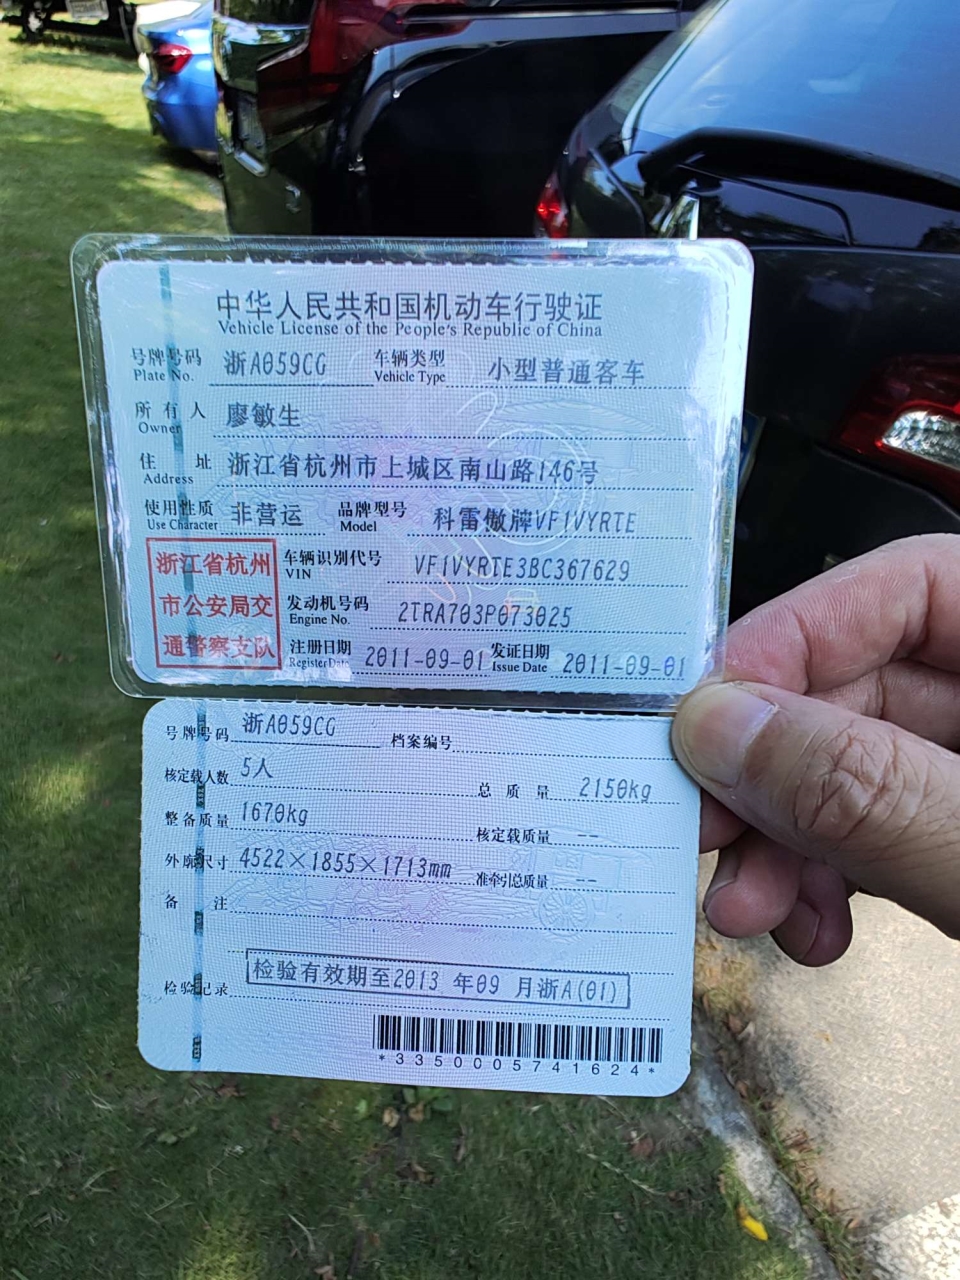 中华人民共和国机动车行驶证
Vehicle License of the People's Republic of China
号牌号码 浙A059CG 车辆类型 小型普通客车
Plate No. Vehicle Type
所有人 廖敏生
Owner
住址 浙江省杭州市上城区南山路146号
Address
使用性质 非营运 品牌型号 科雷傲牌VF1VYRTE
Use Character Model
浙江省杭州市公安局交通警察支队
车辆识别代号 VF1VYRTE3BC367629
VIN
发动机号码 2TRA703P073025
Engine No.
注册日期 2011-09-01 发证日期 2011-09-01
Register Date Issue Date
号牌号码 浙A059CG 档案编号
核定载人数 5人 总质量 2150kg
整备质量 1670kg 核定载质量 --
外廓尺寸 4522×1855×1713mm 准牵引总质量 --
备注
检验记录 检验有效期至2013 年09 月浙A(01)
*3350005741624*